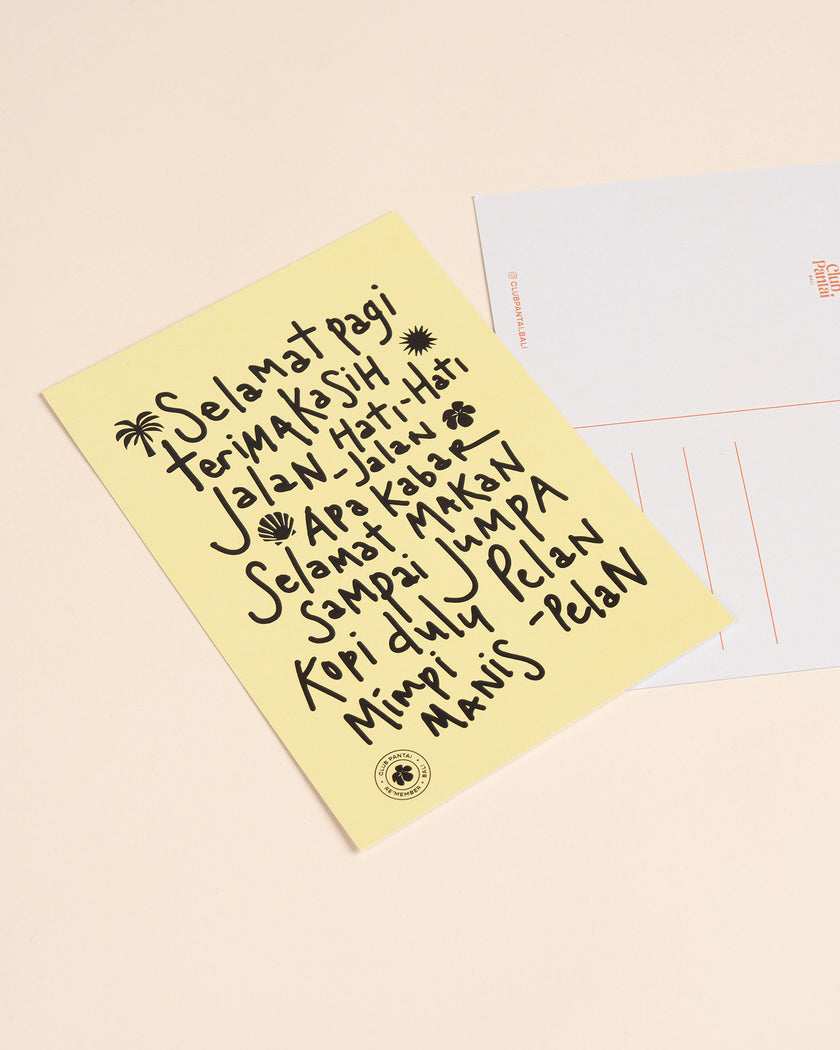 Selamat pagi
terimakasih
Hati-Hati
Jalan-Jalan
Apa kabar
Selamat MAKAN
Sampai JUMPA
Kopi dulu Pelan
-Pelan
Mimpi
MANIS
CLUB PANTAI • BALI • RE*MEMBER •
CLUBPANTAI.BALI
Club
Pantai
BALI